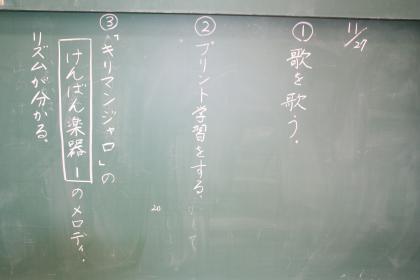 11/27
① 歌を歌う。
② プリント学習をする。
20
③「キリマンジャロ」の
けんばん楽器ーのメロディ。
リズムが分かる。